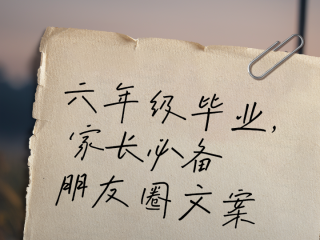 六年级毕业,
家长必备
朋友圈文案